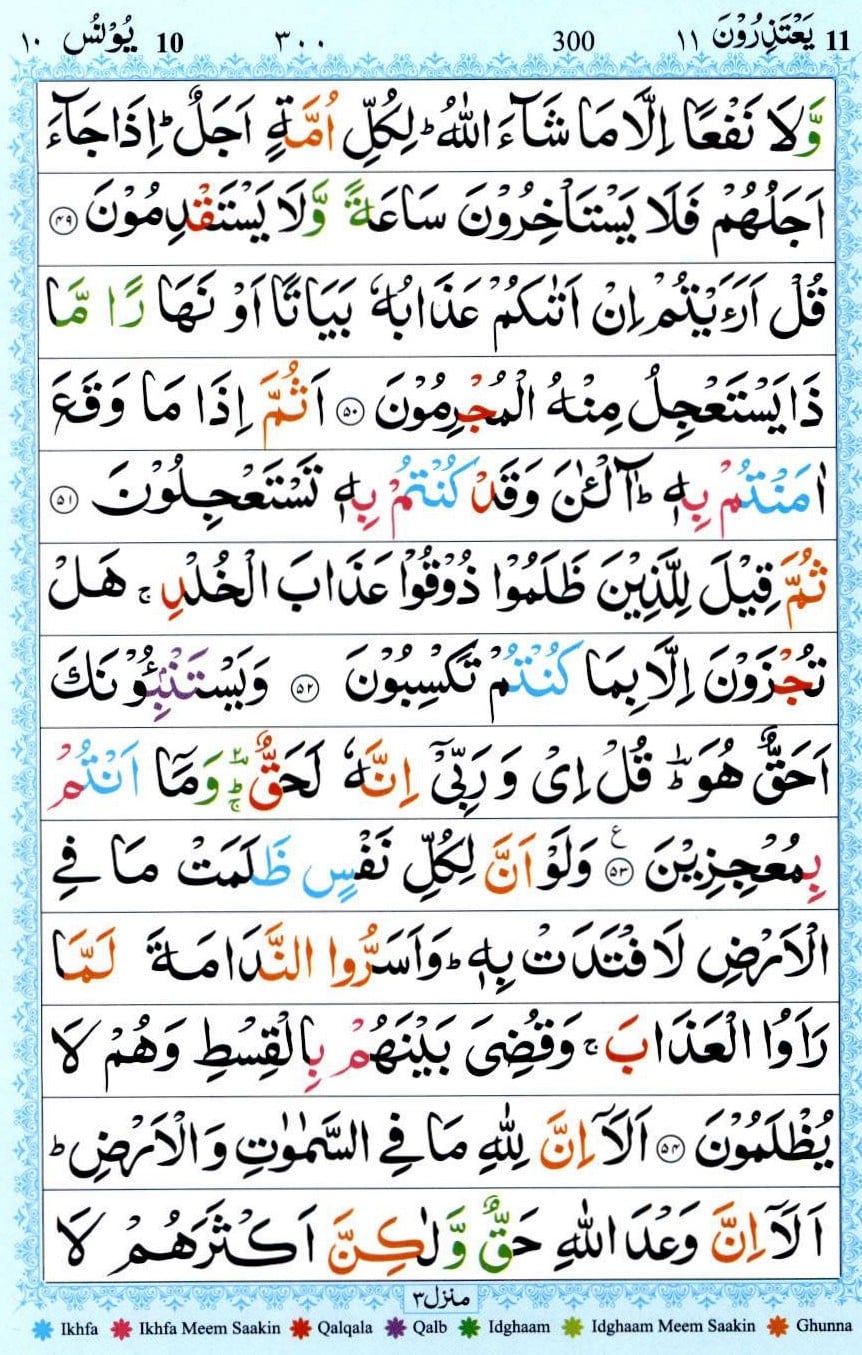 11 يَعْتَذِرُوْنَ ١١ 300 ٣٠٠ 10 يُوْنُسُ ١٠
وَّلَا نَفْعًا اِلَّا مَا شَآءَ اللّٰهُ ؕ لِكُلِّ اُمَّةٍ اَجَلٌ ؕ اِذَا جَآءَ
اَجَلُهُمْ فَلَا يَسْتَاْخِرُوْنَ سَاعَةً وَّلَا يَسْتَقْدِمُوْنَ ۴۹
قُلْ اَرَءَيْتُمْ اِنْ اَتٰىكُمْ عَذَابُهٗ بَيَاتًا اَوْ نَهَارًا مَّا
ذَا يَسْتَعْجِلُ مِنْهُ الْمُجْرِمُوْنَ ۵۰ اَثُمَّ اِذَا مَا وَقَعَ
اٰمَنْتُمْ بِهٖ ؕ آٰلْـٰٔنَ وَقَدْ كُنْتُمْ بِهٖ تَسْتَعْجِلُوْنَ ۵۱
ثُمَّ قِيْلَ لِلَّذِيْنَ ظَلَمُوْا ذُوْقُوْا عَذَابَ الْخُلْدِ ۚ هَلْ
تُجْزَوْنَ اِلَّا بِمَا كُنْتُمْ تَكْسِبُوْنَ ۵۲ وَيَسْتَنْۢبِـُٔوْنَكَ
اَحَقٌّ هُوَ ؕ قُلْ اِىْ وَرَبِّىْۤ اِنَّهٗ لَحَقٌّ ؕۚ وَمَاۤ اَنْتُمْ
بِمُعْجِزِيْنَ ۵۳ ع وَلَوْ اَنَّ لِكُلِّ نَفْسٍ ظَلَمَتْ مَا فِى
الْاَرْضِ لَافْتَدَتْ بِهٖ ؕ وَاَسَرُّوا النَّدَامَةَ لَمَّا
رَاَوُا الْعَذَابَ ۚ وَقُضِىَ بَيْنَهُمْ بِالْقِسْطِ وَهُمْ لَا
يُظْلَمُوْنَ ۵۴ اَلَاۤ اِنَّ لِلّٰهِ مَا فِى السَّمٰوٰتِ وَالْاَرْضِ ؕ
اَلَاۤ اِنَّ وَعْدَ اللّٰهِ حَقٌّ وَّلٰكِنَّ اَكْثَرَهُمْ لَا
منزل ٣
Ikhfa Ikhfa Meem Saakin Qalqala Qalb Idghaam Idghaam Meem Saakin Ghunna